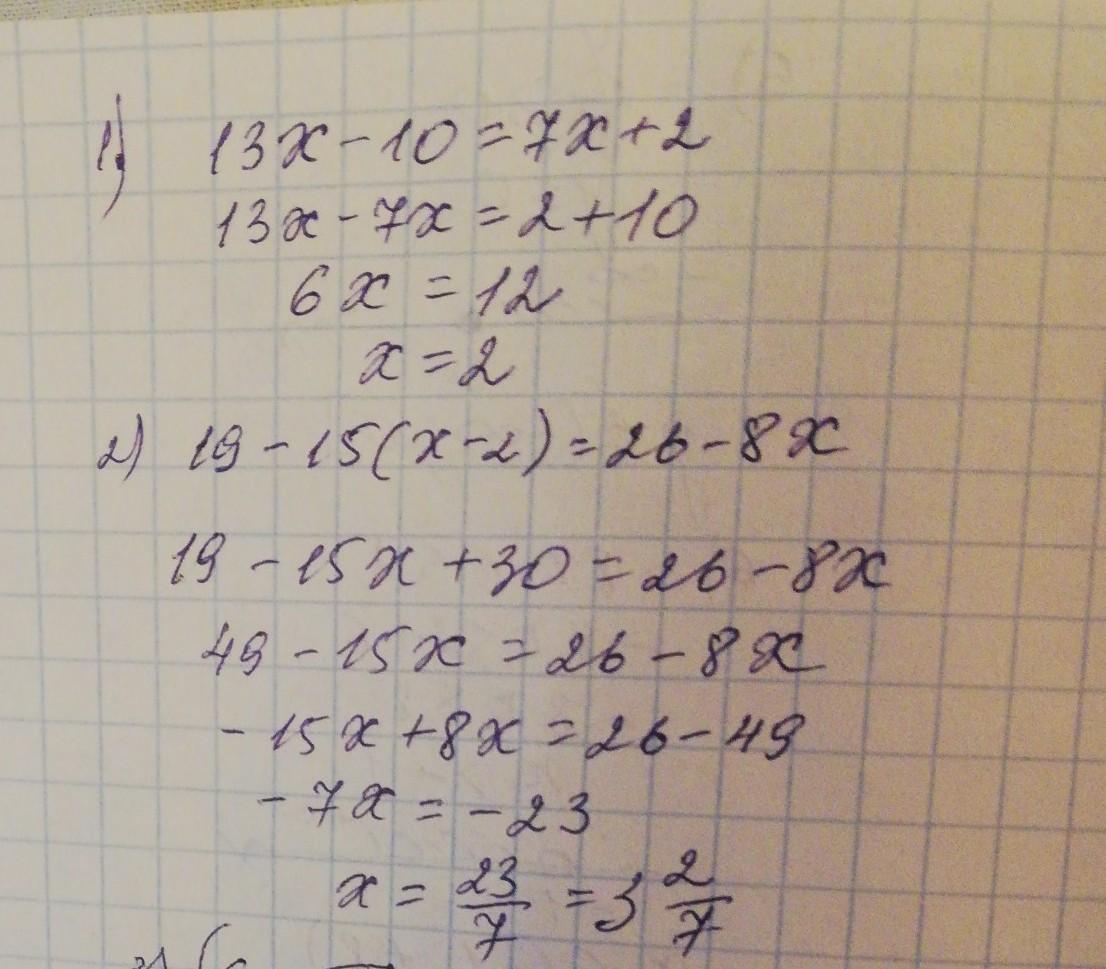 1) 13x-10=7x+2
13x-7x=2+10
6x=12
x=2
2) 19-15(x-2)=26-8x
19-15x+30=26-8x
49-15x=26-8x
-15x+8x=26-49
-7x=-23
x=23/7=3 2/7